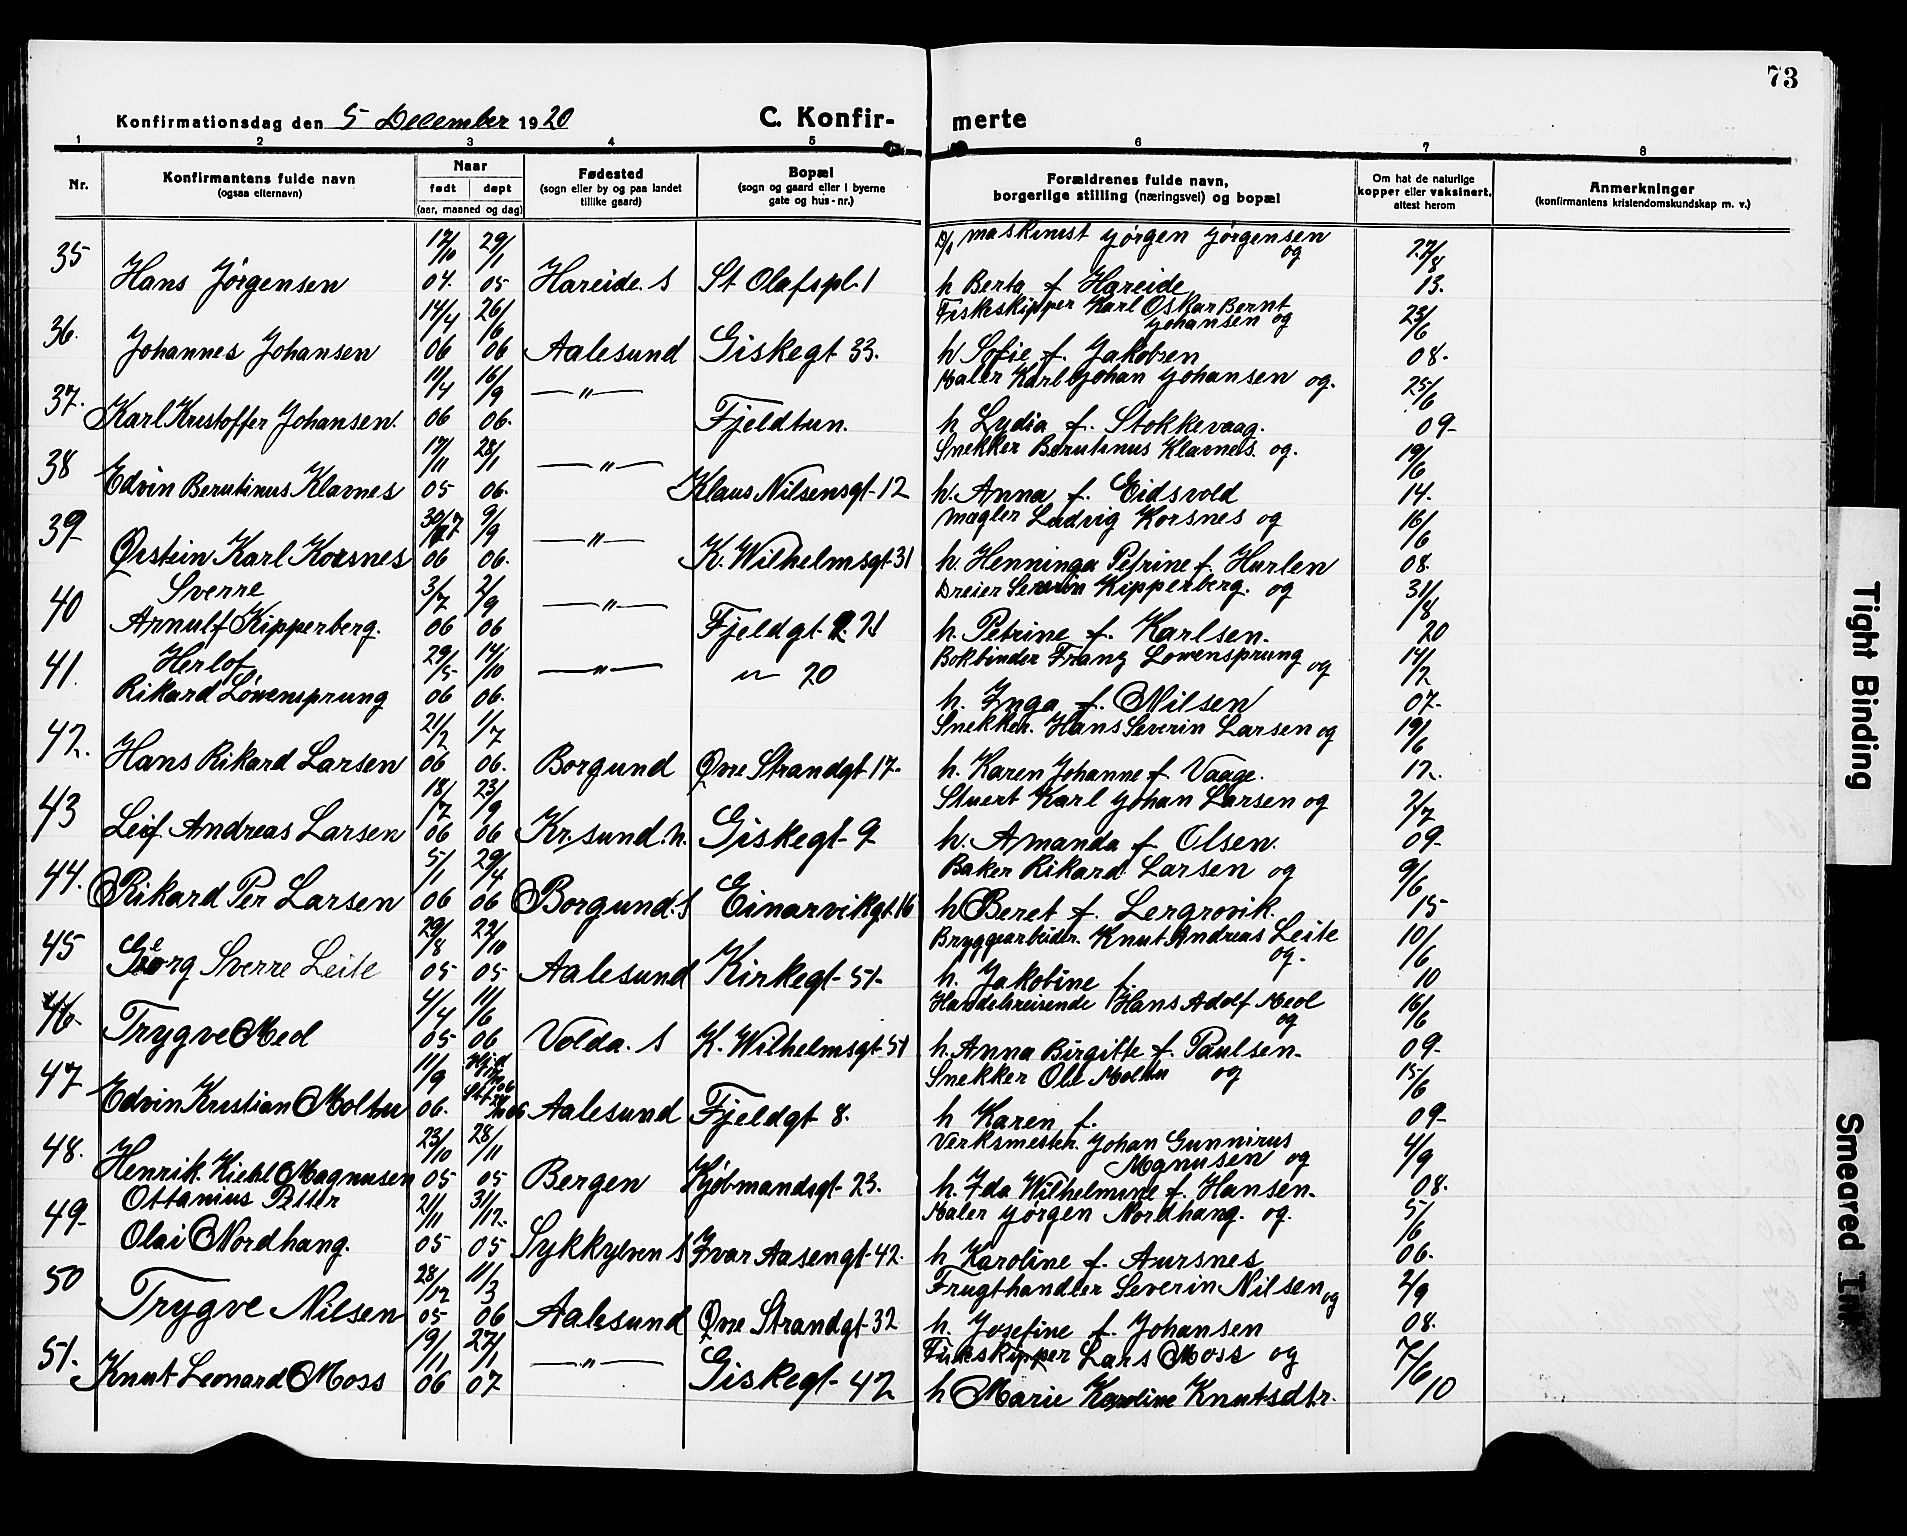 73
Konfirmationsdag den 5 December 1920 C. Konfir- merte
1 2 3 4 5 6 7 8
Nr. Konfirmantens fulde navn (ogsaa elternavn) Naar født døpt (aar, maaned og dag) Fødested (sogn eller by og paa landet tillike gaard) Bopæl (sogn og gaard eller i byerne gate og hus-nr.) Forældrenes fulde navn, borgerlige stilling (næringsvei) og bopæl Om hat de naturlige kopper eller vaksinert, attest herom Anmerkninger (konfirmantens kristendomskundskap m. v.)
35 17/10 29/1 D/s maskinist Jørgen Jørgensen og 27/8
Hans Jørgensen 04. 05 Hareide. S St Olafspl. 1 h Berta f. Hareide 13.
36. 14/4 26/6 Fiskeskipper Karl Oskar Bernt Johansen og 23/6
Johannes Johansen 06 06 Aalesund Giskegt 33. h Sofie f. Jakobsen 08.
37. 11/4 16/9 —"— Maler Karl Johan Johansen og. 25/6
Karl Kristoffer Johansen. 06 06. Fjeldtun. h Lydia f. Stokkevaag. 09-
38 17/11 28/1 —"— Snekker Berutinus Klavnes. og. 19/6
Edvin Berutinus Klavnes 05 06. Klaus Nilsensgt-12 h. Anna f. Eidsvold 14.
39- 9/9 —"— Mægler Ludvig Korsnes og 16/6
Ørstein Karl Korsnes 06 06. K. Wilhelmsgt 31 h. Henninga Petrine f. Hurlen 08.
40 Sverre 3/7 2/9 —"— Dreier Severin Kipperberg. og 31/8
Arnulf Kipperberg. 06 06 Fjeldgt. 21 h. Petrine f. Karlsen. 20
41. Herlof 29/5 14/10 —"— " 20 Bokbinder Franz Løwensprung og 14/2
Rikard Løwensprung 06 06. h. Inga f. Nilsen 07.
42. 21/2 1/7 Snekker. Hans Severin Larsen og 19/6
Hans Rikard Larsen 06 06. Borgund Øvre Strandgt 17. h. Karen Johanne f. Vaage. 12.
43 18/7 23/9 Stuert Karl Johan Larsen og 2/7
Leif Andreas Larsen 06 06 Kr.sund. N. Giskegt- 9 h. Amanda f. Olsen. 09-
44. 5/1 29/4 Baker Rikard Larsen og 9/6
Rikard Per Larsen 06 06 Borgund. S Einarvikgt. 16 h Beret f. Lergrovik. 15
45 29/8 22/10 Bryggearbeider. Knut Andreas Leite og. 10/6
Georg Sverre Leite 05 05 Aalesund Kirkegt- 51. h. Jakobine f. 10
46. 4/4 11/6 Handelsreisende Hans Adolf Meol og 16/6
Trygve Meol 05 06 Volda. S K. Wilhelmsgt-51 h. Anna Birgitte f. Paulsen. 09-
47 11/9 Snekker Ole Moltu og 15/6
Edvin Kristian Moltu 06. Aalesund Fjeldgt 8. h Karen f. 09-
48. 23/10 28/11 Verksmester. Johan Gunnirus Mgnusen og 4/9
Henrik. Kiehl Magnusen 05 05 Bergen Kjøbmandsgt- 23. h. Ida Wilhelmine f. Hansen. 08.
49- Ottanius Petter 21/11 31/12. Maler Jørgen Nordhang. og. 5/6
Olai Nordhang. 05 05 Sykkylven S Ivar Aasengt-42. h Karoline f. Aursnes 06.
50 28/12 11/3 Frugthandler Severin Nilsen og 2/9
Trygve Nilsen 05 06 Aalesund Øvre Strandgt-32 h. Josefine f. Johansen 08.
51. 19/11 27/1 —"— Fiskeskipper Lars Moss og 7/6
Knut Leonard Moss 06 07 Giskegt- 42 h Marie Karoline Knutsdtr. 10
Tight Binding
Smeared Ink